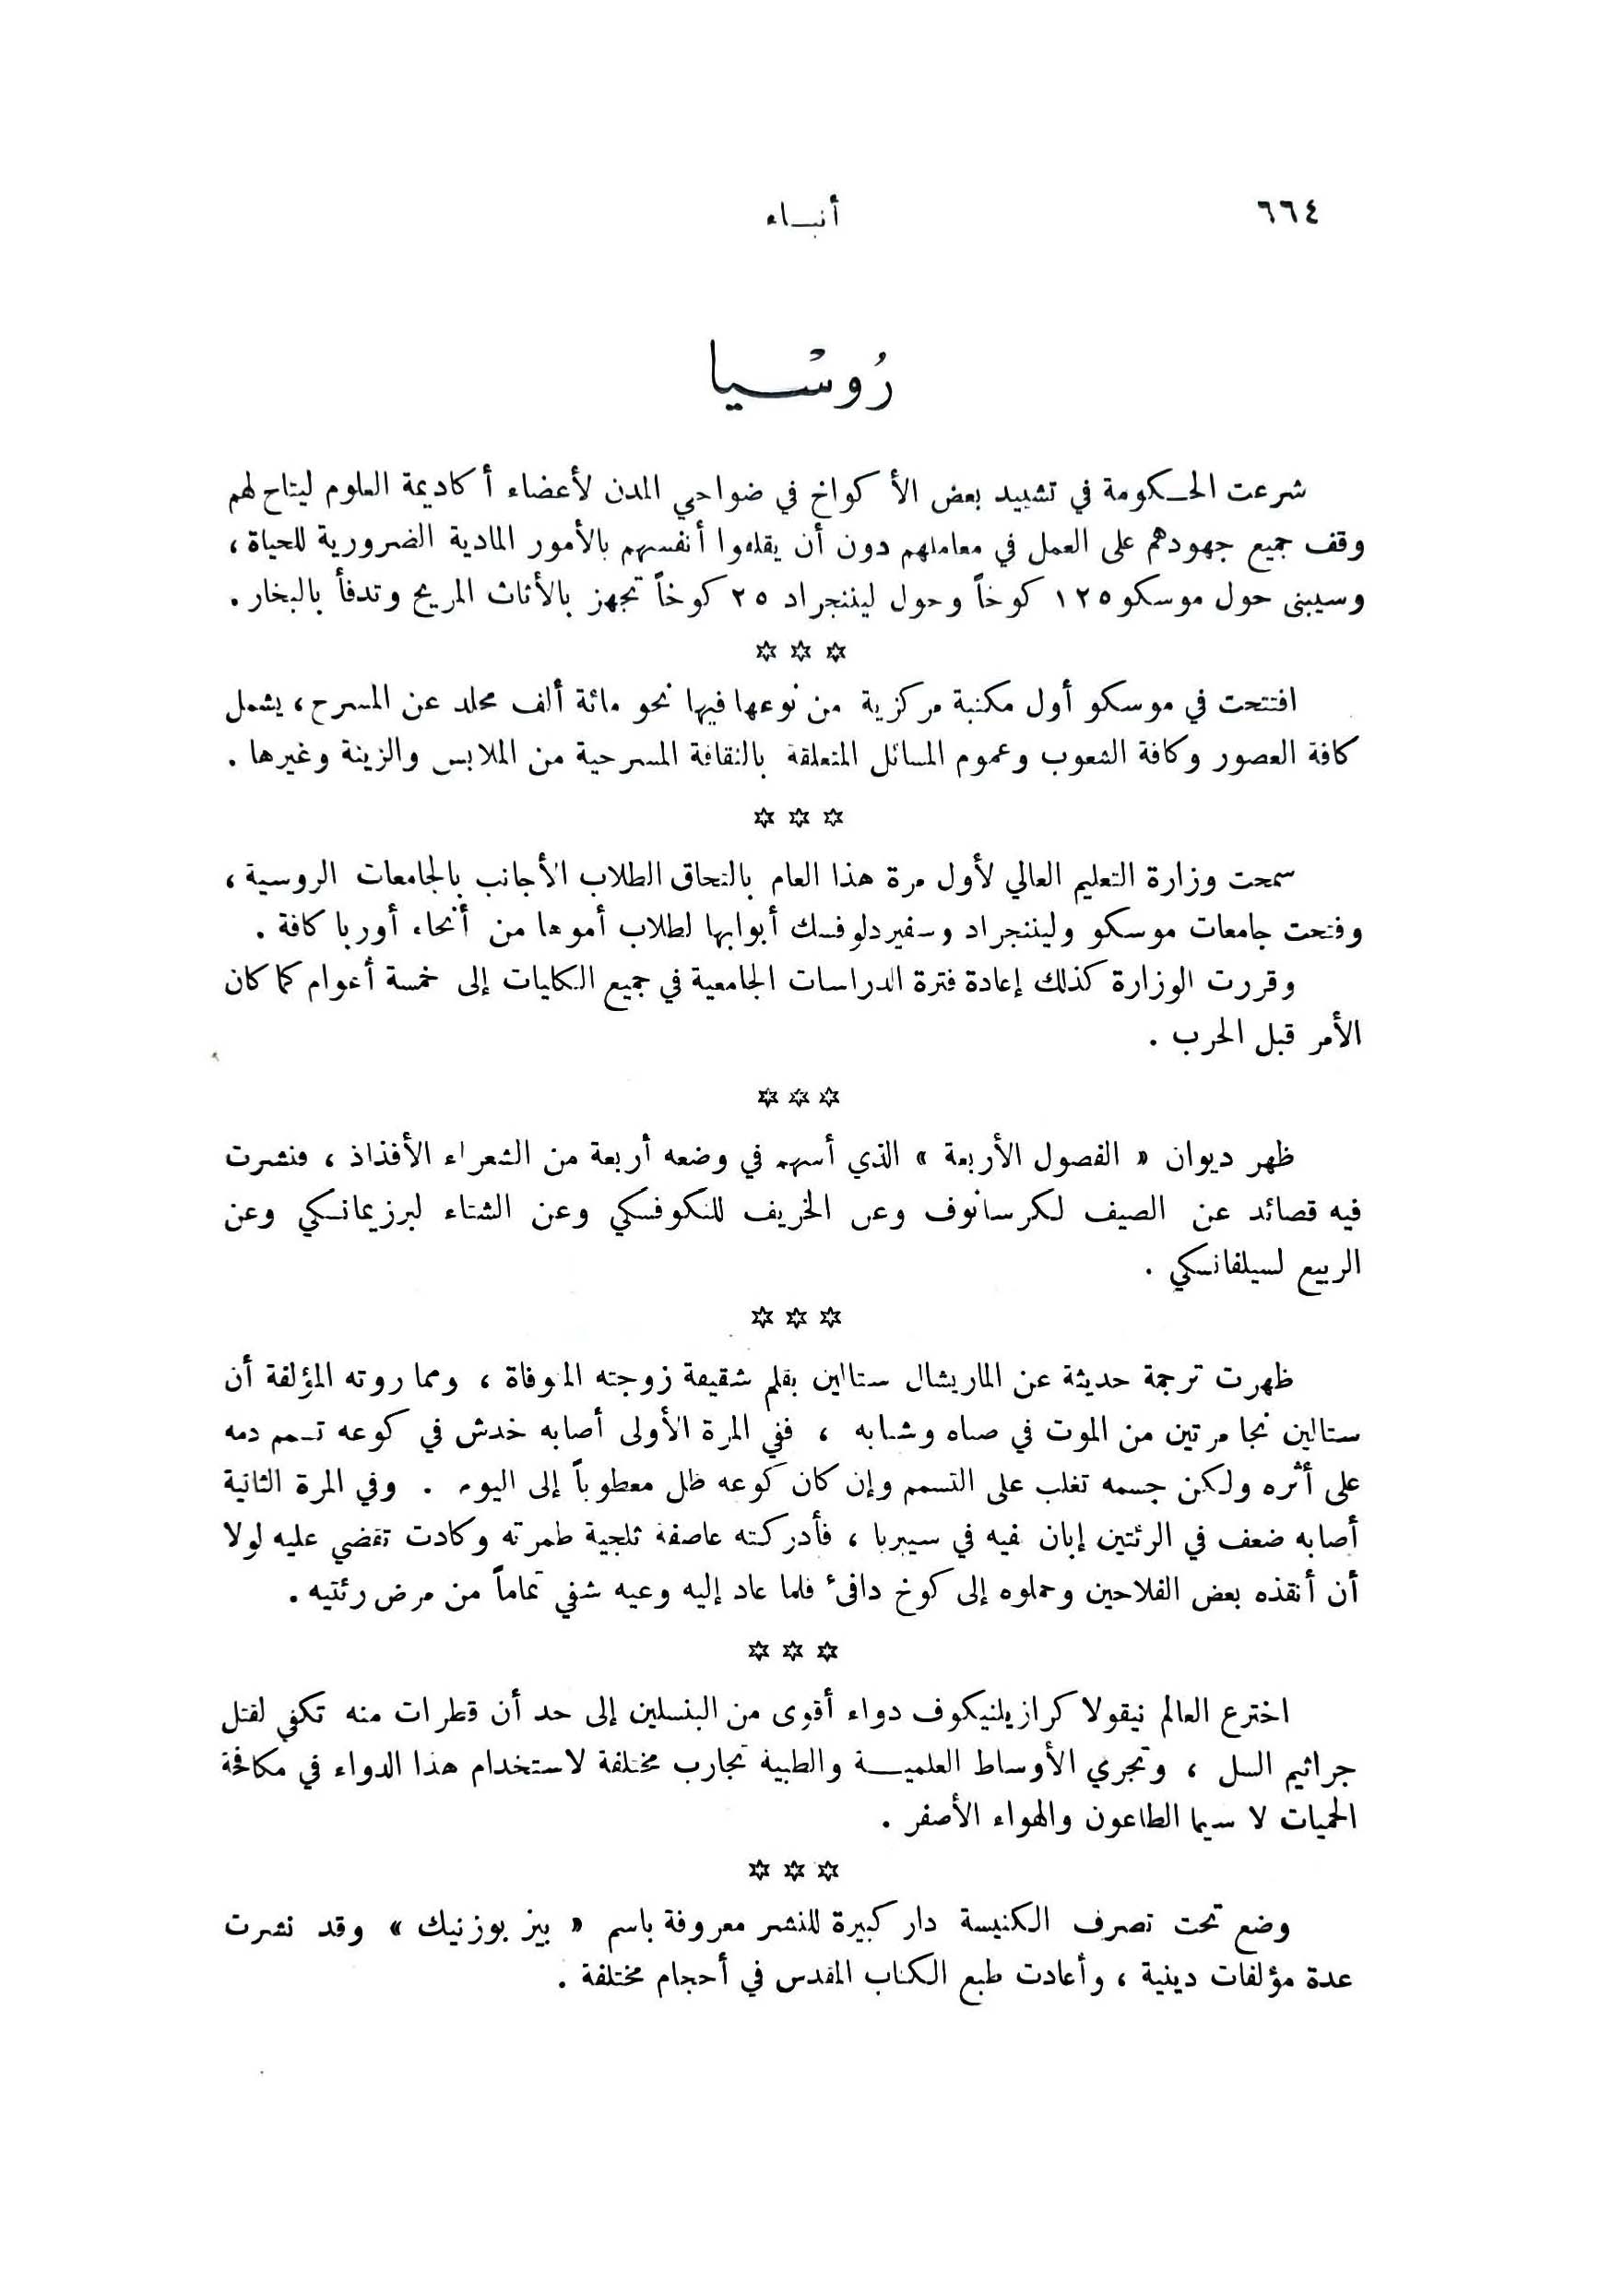 ٦٦٤
أنبـاء
رُوسْـيا
شرعت الحكومة في تشييد بعض الأكواخ في ضواحي المدن لأعضاء أكاديمة العلوم ليتاح لهم
وقف جميع جهودهم على العمل في معاملهم دون أن يقلقوا أنفسهم بالأمور المادية الضرورية للحياة ،
وسيبنى حول موسكو ١٢٥ كوخاً وحول ليننجراد ٢٥ كوخاً تجهز بالأثاث المريح وتدفأ بالبخار .
✡ ✡ ✡
افتتحت في موسكو أول مكتبة مركزية من نوعها فيها نحو مائة ألف مجلد عن المسرح ، يشمل
كافة العصور وكافة الشعوب وعموم المسائل المتعلقة بالثقافة المسرحية من الملابس والزينة وغيرها .
✡ ✡ ✡
سمحت وزارة التعليم العالي لأول مرة هذا العام بالتحاق الطلاب الأجانب بالجامعات الروسية ،
وفتحت جامعات موسكو وليننجراد وسفيردلوفسك أبوابها لطلاب أموها من أنحاء أوربا كافة .
وقررت الوزارة كذلك إعادة فترة الدراسات الجامعية في جميع الكليات إلى خمسة أعوام كما كان
الأمر قبل الحرب .
✡ ✡ ✡
ظهر ديوان « الفصول الأربعة » الذي أسهم في وضعه أربعة من الشعراء الأفذاذ ، فنشرت
فيه قصائد عن الصيف لكرسانوف وعن الخريف للنكوفسكي وعن الشتاء لبرزيمانسكي وعن
الربيع لسيلفانسكي .
✡ ✡ ✡
ظهرت ترجمة حديثة عن الماريشال ستالين بقلم شقيقة زوجته المتوفاة ، ومما روته المؤلفة أن
ستالين نجا مرتين من الموت في صباه وشبابه ، ففي المرة الأولى أصابه خدش في كوعه تسمم دمه
على أثره ولكن جسمه تغلب على التسمم وإن كان كوعه ظل معطوباً إلى اليوم . وفي المرة الثانية
أصابه ضعف في الرئتين إبان نفيه في سيبريا ، فأدركته عاصفة ثلجية طمرته وكادت تقضي عليه لولا
أن أنقذه بعض الفلاحين وحملوه إلى كوخ دافىء فلما عاد إليه وعيه شفي تماماً من مرض رئتيه .
✡ ✡ ✡
اخترع العالم نيقولا كرازيلنيكوف دواء أقوى من البنسلين إلى حد أن قطرات منه تكفي لقتل
جراثيم السل ، وتجري الأوساط العلميـة والطبية تجارب مختلفة لاستخدام هذا الدواء في مكافحة
الحميات لا سيما الطاعون والهواء الأصفر .
✡ ✡ ✡
وضع تحت تصرف الكنيسة دار كبيرة للنشر معروفة باسم « بيز بوزنيك » وقد نشرت
عدة مؤلفات دينية ، وأعادت طبع الكتاب المقدس في أحجام مختلفة .